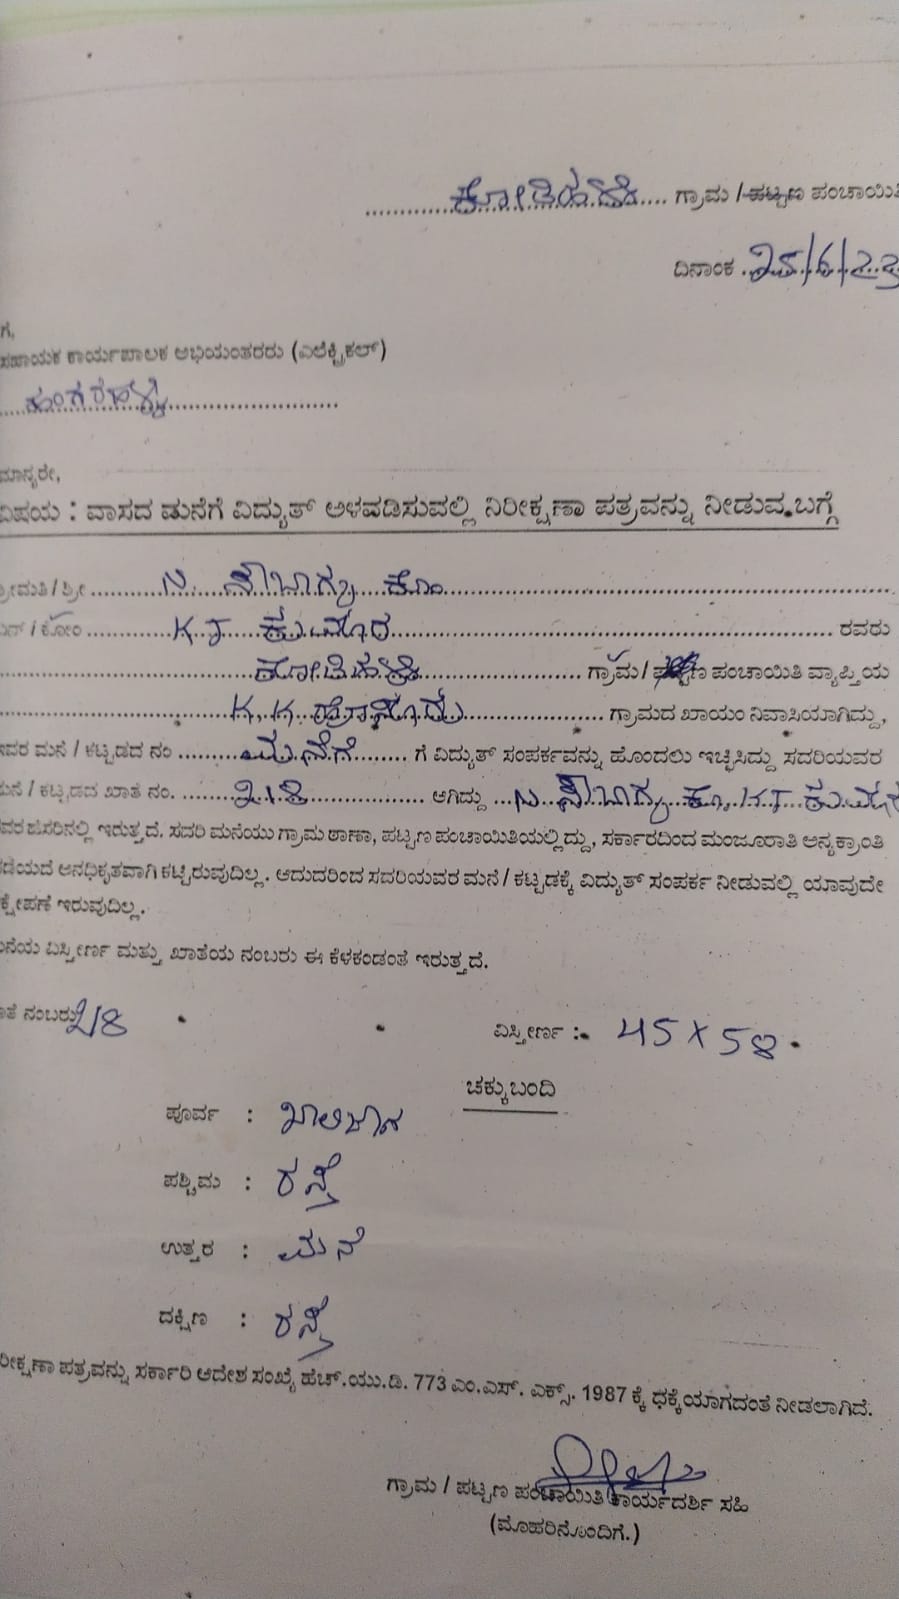 ಕೋಡಿಹಳ್ಳಿ ಗ್ರಾಮ / ಪಟ್ಟಣ ಪಂಚಾಯಿತಿ
ದಿನಾಂಕ 25/6/22
ಗೆ,
ಸಹಾಯಕ ಕಾರ್ಯಪಾಲಕ ಅಭಿಯಂತರರು (ಎಲೆಕ್ಟ್ರಿಕಲ್)
ಮಾನ್ಯರೇ,
ವಿಷಯ : ವಾಸದ ಮನೆಗೆ ವಿದ್ಯುತ್ ಅಳವಡಿಸುವಲ್ಲಿ ನಿರೀಕ್ಷಣಾ ಪತ್ರವನ್ನು ನೀಡುವ ಬಗ್ಗೆ
ಶ್ರೀಮತಿ / ಶ್ರೀ N. ಸೌಭಾಗ್ಯ ಕೋಂ
ಬಿನ್ / ಕೋಂ K.J ಕುಮಾರ ರವರು
ಗ್ರಾಮ / ಪಟ್ಟಣ ಪಂಚಾಯಿತಿ ವ್ಯಾಪ್ತಿಯ
K.K. ಗ್ರಾಮದ ಖಾಯಂ ನಿವಾಸಿಯಾಗಿದ್ದು,
ಇವರ ಮನೆ / ಕಟ್ಟಡದ ನಂ ಮನೆಗೆ ಗೆ ವಿದ್ಯುತ್ ಸಂಪರ್ಕವನ್ನು ಹೊಂದಲು ಇಚ್ಛಿಸಿದ್ದು ಸದರಿಯವರ
ಮನೆ / ಕಟ್ಟಡದ ಖಾತೆ ನಂ. 218 ಆಗಿದ್ದು N. ಸೌಭಾಗ್ಯ ಕೋ, K.J. ಕುಮಾರ
ರವರ ಹೆಸರಿನಲ್ಲಿ ಇರುತ್ತದೆ. ಸದರಿ ಮನೆಯು ಗ್ರಾಮ ಠಾಣಾ, ಪಟ್ಟಣ ಪಂಚಾಯಿತಿಯಲ್ಲಿದ್ದು, ಸರ್ಕಾರದಿಂದ ಮಂಜೂರಾತಿ ಅನ್ಯಕ್ರಾಂತಿ
ಪಡೆಯದೆ ಅನಧಿಕೃತವಾಗಿ ಕಟ್ಟಿರುವುದಿಲ್ಲ. ಆದುದರಿಂದ ಸದರಿಯವರ ಮನೆ / ಕಟ್ಟಡಕ್ಕೆ ವಿದ್ಯುತ್ ಸಂಪರ್ಕ ನೀಡುವಲ್ಲಿ ಯಾವುದೇ
ಕ್ಷೇಪಣೆ ಇರುವುದಿಲ್ಲ.
ಮನೆಯ ವಿಸ್ತೀರ್ಣ ಮತ್ತು ಖಾತೆಯ ನಂಬರು ಈ ಕೆಳಕಂಡಂತೆ ಇರುತ್ತದೆ.
ಖಾತೆ ನಂಬರು 218 ವಿಸ್ತೀರ್ಣ : 45 X 58
ಚಕ್ಕುಬಂದಿ
ಪೂರ್ವ : ಖಾಲಿಜಾಗ
ಪಶ್ಚಿಮ : ರಸ್ತೆ
ಉತ್ತರ : ಮನೆ
ದಕ್ಷಿಣ : ರಸ್ತೆ
ನಿರೀಕ್ಷಣಾ ಪತ್ರವನ್ನು ಸರ್ಕಾರಿ ಆದೇಶ ಸಂಖ್ಯೆ ಹೆಚ್.ಯು.ಡಿ. 773 ಎಂ.ಎಸ್. ಎಕ್ಸ್. 1987 ಕ್ಕೆ ಧಕ್ಕೆಯಾಗದಂತೆ ನೀಡಲಾಗಿದೆ.
ಗ್ರಾಮ / ಪಟ್ಟಣ ಪಂಚಾಯಿತಿ ಕಾರ್ಯದರ್ಶಿ ಸಹಿ
(ಮೊಹರಿನೊಂದಿಗೆ.)